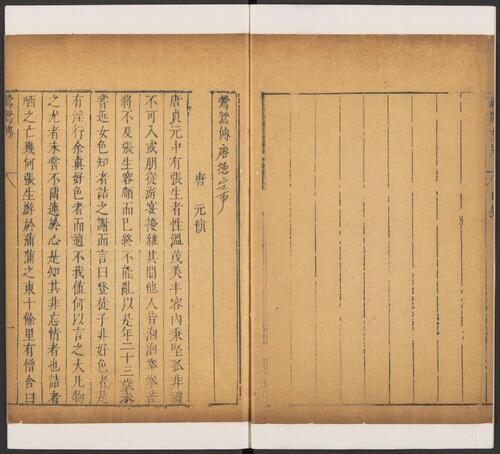 鶯鶯傳
唐 元稹
唐貞元中有張生者性溫茂美丰容內秉堅孤非禮
不可入或朋從游宴擾雜其間他人皆洶洶拳拳若
將不及張生容順而已終不能亂以是年二十三歲未
嘗近女色知者詰之謝而言曰登徒子非好色者是
有淫行余真好色者而適不我值何以言之大凡物
之尤者未嘗不留連於心是知其非忘情者也詰者
哂之亡幾何張生游於蒲蒲之東十餘里有僧舍曰
鶯鶯傳
一